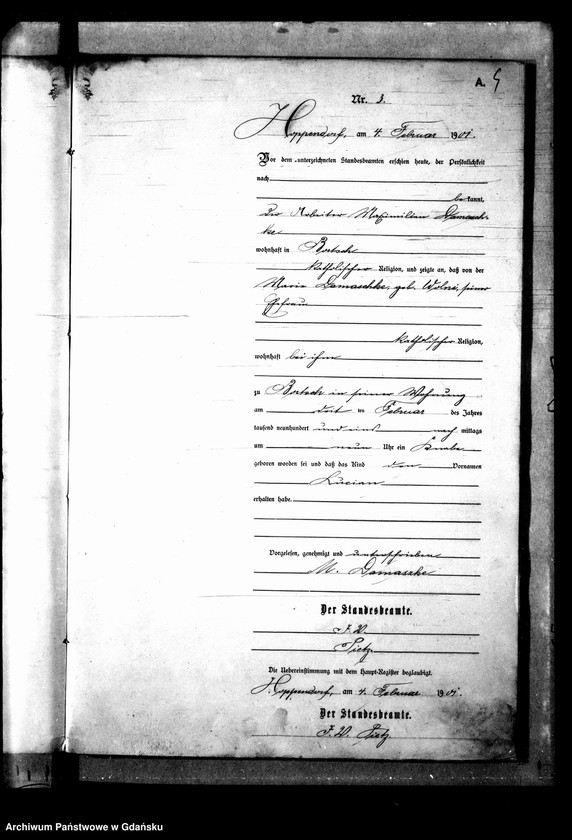 A. 5
Nr. 3.
Hoppendorf, am 4. Februar 1901.
Vor dem unterzeichneten Standesbeamten erschien heute, der Persönlichkeit
nach
bekannt,
der Arbeiter Maximilian Damasch-
ke
wohnhaft in Bortsch
katholischer Religion, und zeigte an, daß von der
Maria Damaschke, geb. Wolni, seiner
Ehefrau
katholischer Religion,
wohnhaft bei ihm
zu Bortsch in seiner Wohnung
am drei ten Februar des Jahres
tausend neunhundert und eins nach mittags
um neun Uhr ein Knabe
geboren worden sei und daß das Kind den Vornamen
Lucian
erhalten habe.
Vorgelesen, genehmigt und unterschrieben
M. Damaszke
Der Standesbeamte.
I. V.
Tietz
Die Uebereinstimmung mit dem Haupt-Register beglaubigt.
Hoppendorf, am 4. Februar 1901.
Der Standesbeamte.
I. V. Tietz
Archiwum Państwowe w Gdańsku